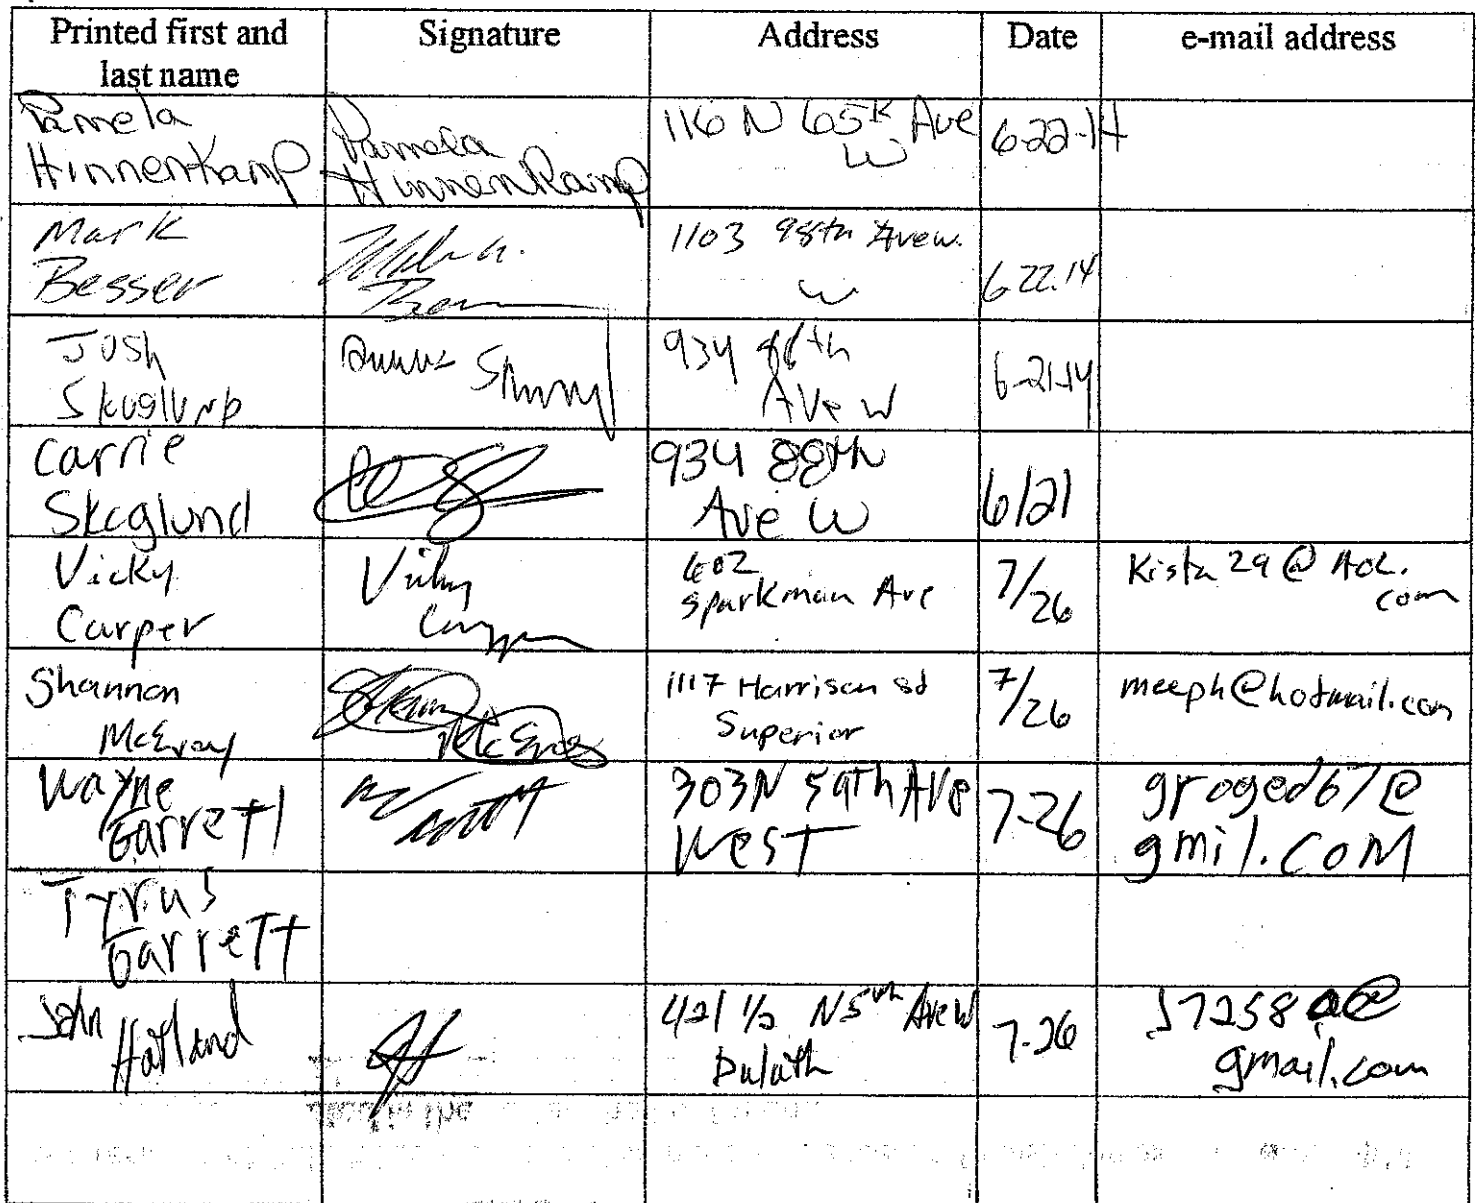 Printed first and last name | Signature | Address | Date | e-mail address
Pamela Hinnenkamp | Pamela Hinnenkamp | 116 N 65th Ave W | 6-22-14
Mark Besser | 1103 98th Ave w. W | 6.22.14
Josh Skoglund | 934 88th Ave W | 6-21-14
Carrie Skoglund | 934 88th Ave W | 6/21
Vicky Carper | Vicky | 402 Sparkman Ave | 7/26 | Kista29@AOL.com
Shannon McEvoy | McEvoy | 1117 Harrison st Superior | 7/26 | meeph@hotmail.com
Wayne Garrett | 303 N 59th AVe West | 7-26 | groged67@gmil.com
Tyrus Garrett
John Hatland | 421 1/2 N 5th Ave W Duluth | 7-26 | @gmail.com